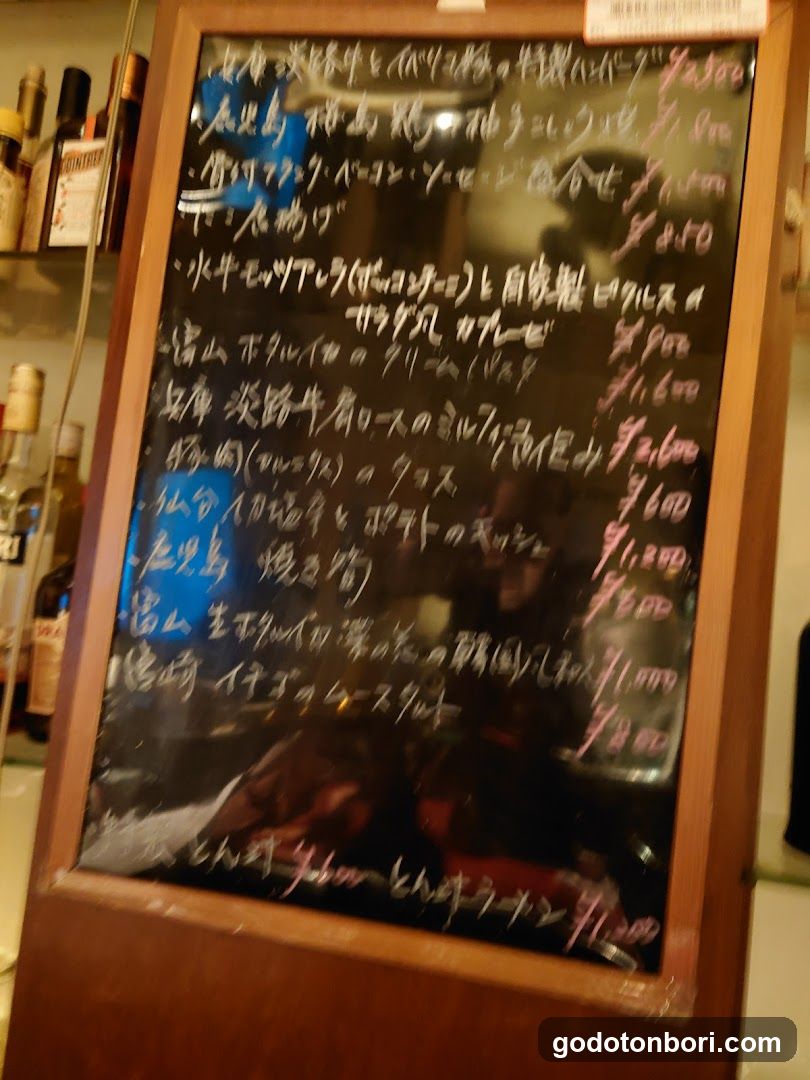 COINTREAU
兵庫 淡路牛とイベリコ豚の特製ハンバーグ ¥2,500
・鹿児島 桜島鶏の柚子こしょう焼 ¥1,800
・骨付フランク・ベーコン・ソーセージ盛合せ ¥1,500
唐揚げ ¥850
・水牛モッツアレラ(ボッコンチーニ)と自家製ピクルスの
サラダ風 カプレーゼ ¥900
・富山 ホタルイカのクリームパスタ ¥1,600
兵庫 淡路牛肩ロースのミルフィーユ ¥2,600
・豚肉(カルニタス)のタコス ¥600
・仙台 イカ塩辛とポテトの ¥1,200
・鹿児島 焼き筍 ¥600
・富山 生ホタルイカ 菜の花の韓国風和え ¥1,000
・宮崎 イチゴのムースタルト ¥800
とん汁 ¥600 とん汁ラーメン ¥1,200
godotonbori.com